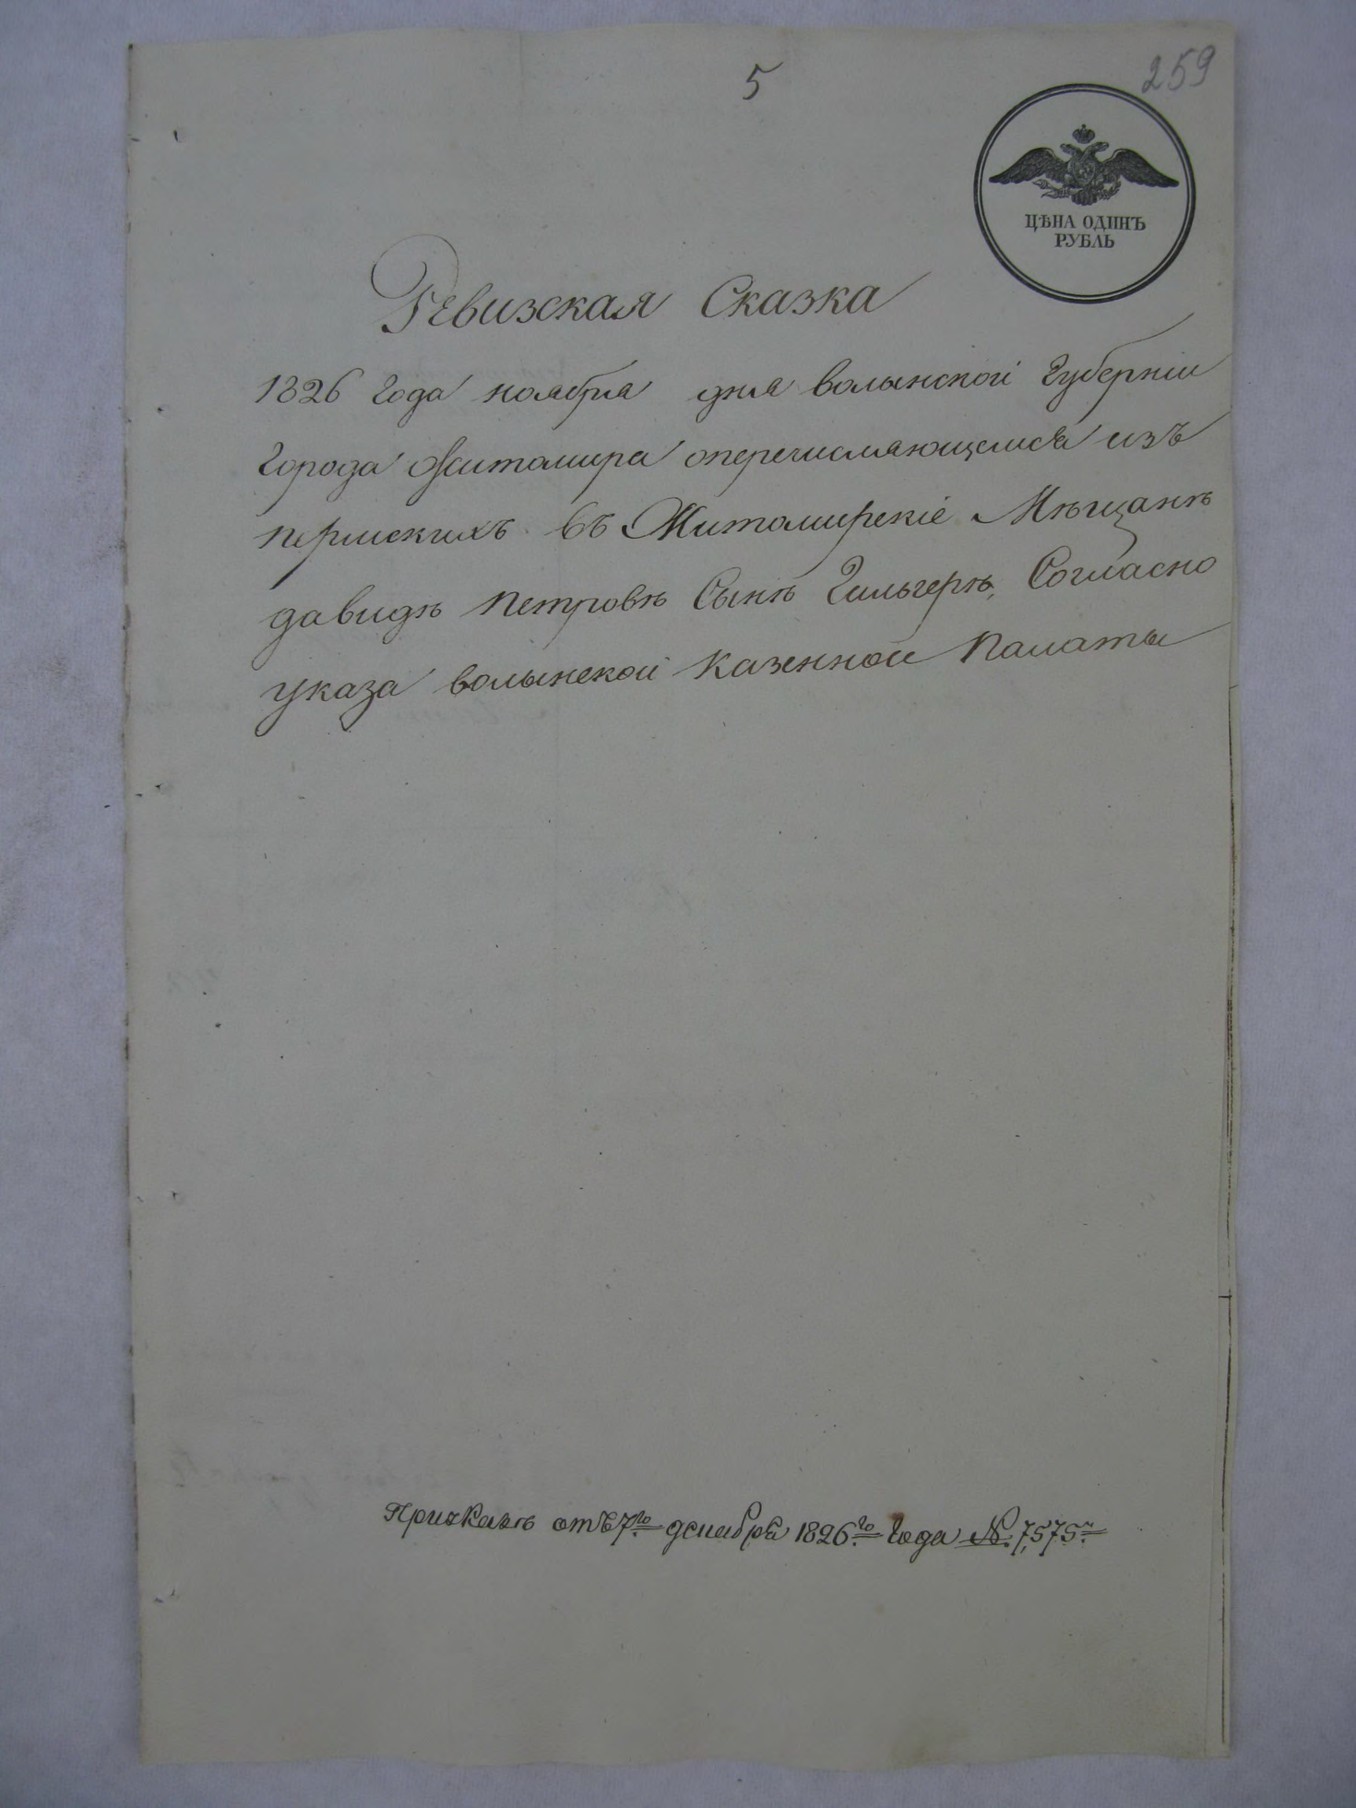 5
259
ЦѢНА ОДИНЪ
РУБЛЬ
Ревизская Сказка
1826 Года ноября дня волынской Губерніи
Города Житомира оперечисляющемся изъ
въ Житомирскіе Мѣщанъ
давидъ Петровъ Сынъ Гильгеръ, Согласно
указа волынской Казенной Палаты
отъ 7го декабря 1826го Года № 7,575.